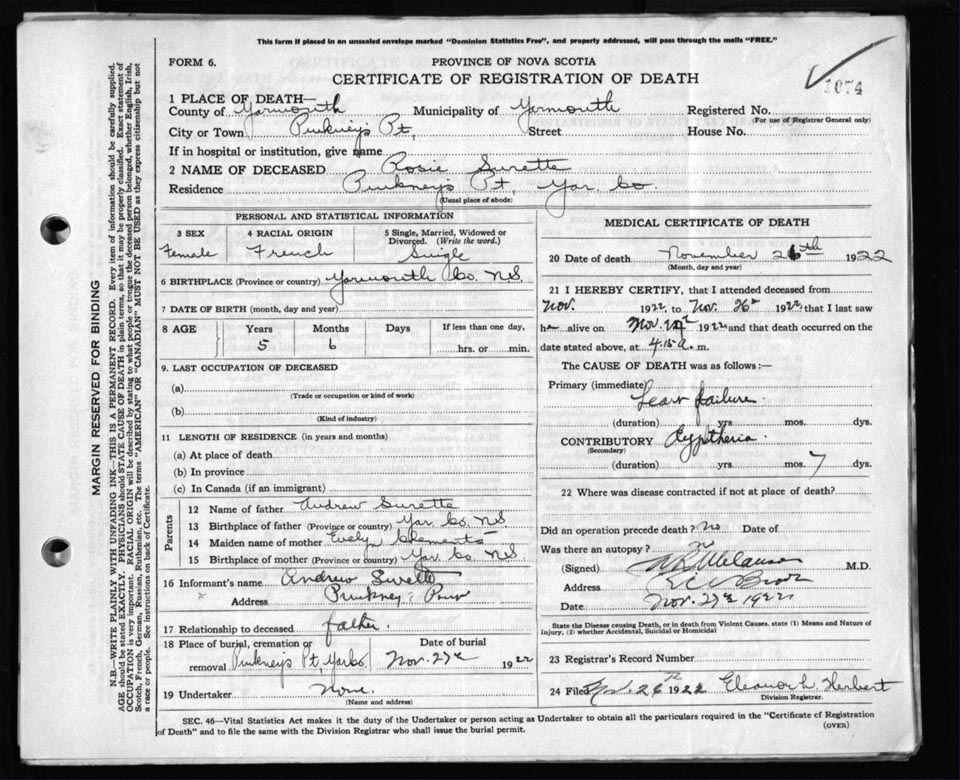 This form if placed in an unsealed envelope marked "Dominion Statistics Free", and properly addressed, will pass through the mails "FREE."
FORM 6.
PROVINCE OF NOVA SCOTIA
CERTIFICATE OF REGISTRATION OF DEATH
1074
1 PLACE OF DEATH—
County of Yarmouth Municipality of Yarmouth Registered No.
(For use of Registrar General only)
City or Town Pinkney's Pt, Street House No.
If in hospital or institution, give name
2 NAME OF DECEASED Rosie Surette
Residence Pinkney's Pt, Yar. Co.
(Usual place of abode)
PERSONAL AND STATISTICAL INFORMATION
3 SEX 4 RACIAL ORIGIN 5 Single, Married, Widowed or Divorced. (Write the word.)
Female French Single
6 BIRTHPLACE (Province or country) Yarmouth Co. N.S
7 DATE OF BIRTH (month, day and year)
8 AGE Years Months Days If less than one day,
5 6 hrs. or min.
9. LAST OCCUPATION OF DECEASED
(a)
(Trade or occupation or kind of work)
(b)
(Kind of industry)
11 LENGTH OF RESIDENCE (in years and months)
(a) At place of death
(b) In province
(c) In Canada (if an immigrant)
Parents
12 Name of father Andrew Surette
13 Birthplace of father (Province or country) Yar. Co. N.S
14 Maiden name of mother Evelyn Clements
15 Birthplace of mother (Province or country) Yar. Co. N.S
16 Informant's name Andrew Surette
Address Pinkney's
17 Relationship to deceased father.
18 Place of burial, cremation or Date of burial
removal Pinkneys Pt Yar Co. Nov. 27 1922
19 Undertaker None.
(Name and address)
MEDICAL CERTIFICATE OF DEATH
20 Date of death November 26th 1922
(Month, day and year)
21 I HEREBY CERTIFY, that I attended deceased from
Nov. 1922, to Nov. 26 1922, that I last saw
h alive on Nov. 1922 and that death occurred on
date stated above, at 4.15 a. m.
The CAUSE OF DEATH was as follows:—
Primary (immediate)
Heart failure
(duration) yrs mos. dys.
CONTRIBUTORY
(Secondary)
(duration) yrs. mos. 7 dys.
22 Where was disease contracted if not at place of death?
Did an operation precede death? no Date of
Was there an autopsy? no
(Signed) Melanson M.D.
Address
Date Nov. 27 1922
State the Disease causing Death, or in death from Violent Causes, state (1) Means and Nature of
Injury, (2) whether Accidental, Suicidal or Homicidal
23 Registrar's Record Number
24 Filed 26th 1922 Eleanor L. Herbert
Division Registrar.
SEC. 46—Vital Statistics Act makes it the duty of the Undertaker or person acting as Undertaker to obtain all the particulars required in the "Certificate of Registration
of Death" and to file the same with the Division Registrar who shall issue the burial permit.
(OVER)
MARGIN RESERVED FOR BINDING
N.B.—WRITE PLAINLY WITH UNFADING INK—THIS IS A PERMANENT RECORD. Every item of information should be carefully supplied.
AGE should be stated EXACTLY. PHYSICIANS should STATE CAUSE OF DEATH in plain terms, so that it may be properly classified. Exact statement of
OCCUPATION is very important. RACIAL ORIGIN will be described by stating to what people or tongue the deceased person belonged, whether English, Irish,
Scotch, French, German, Russian, Ruthenian, etc. The terms "AMERICAN" OR "CANADIAN" MUST NOT BE USED as they express citizenship but not
a race or people. See instructions on back of Certificate.